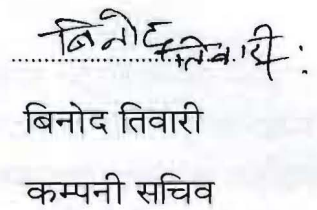 बिनोद तिवारी
....................
बिनोद तिवारी
कम्पनी सचिव